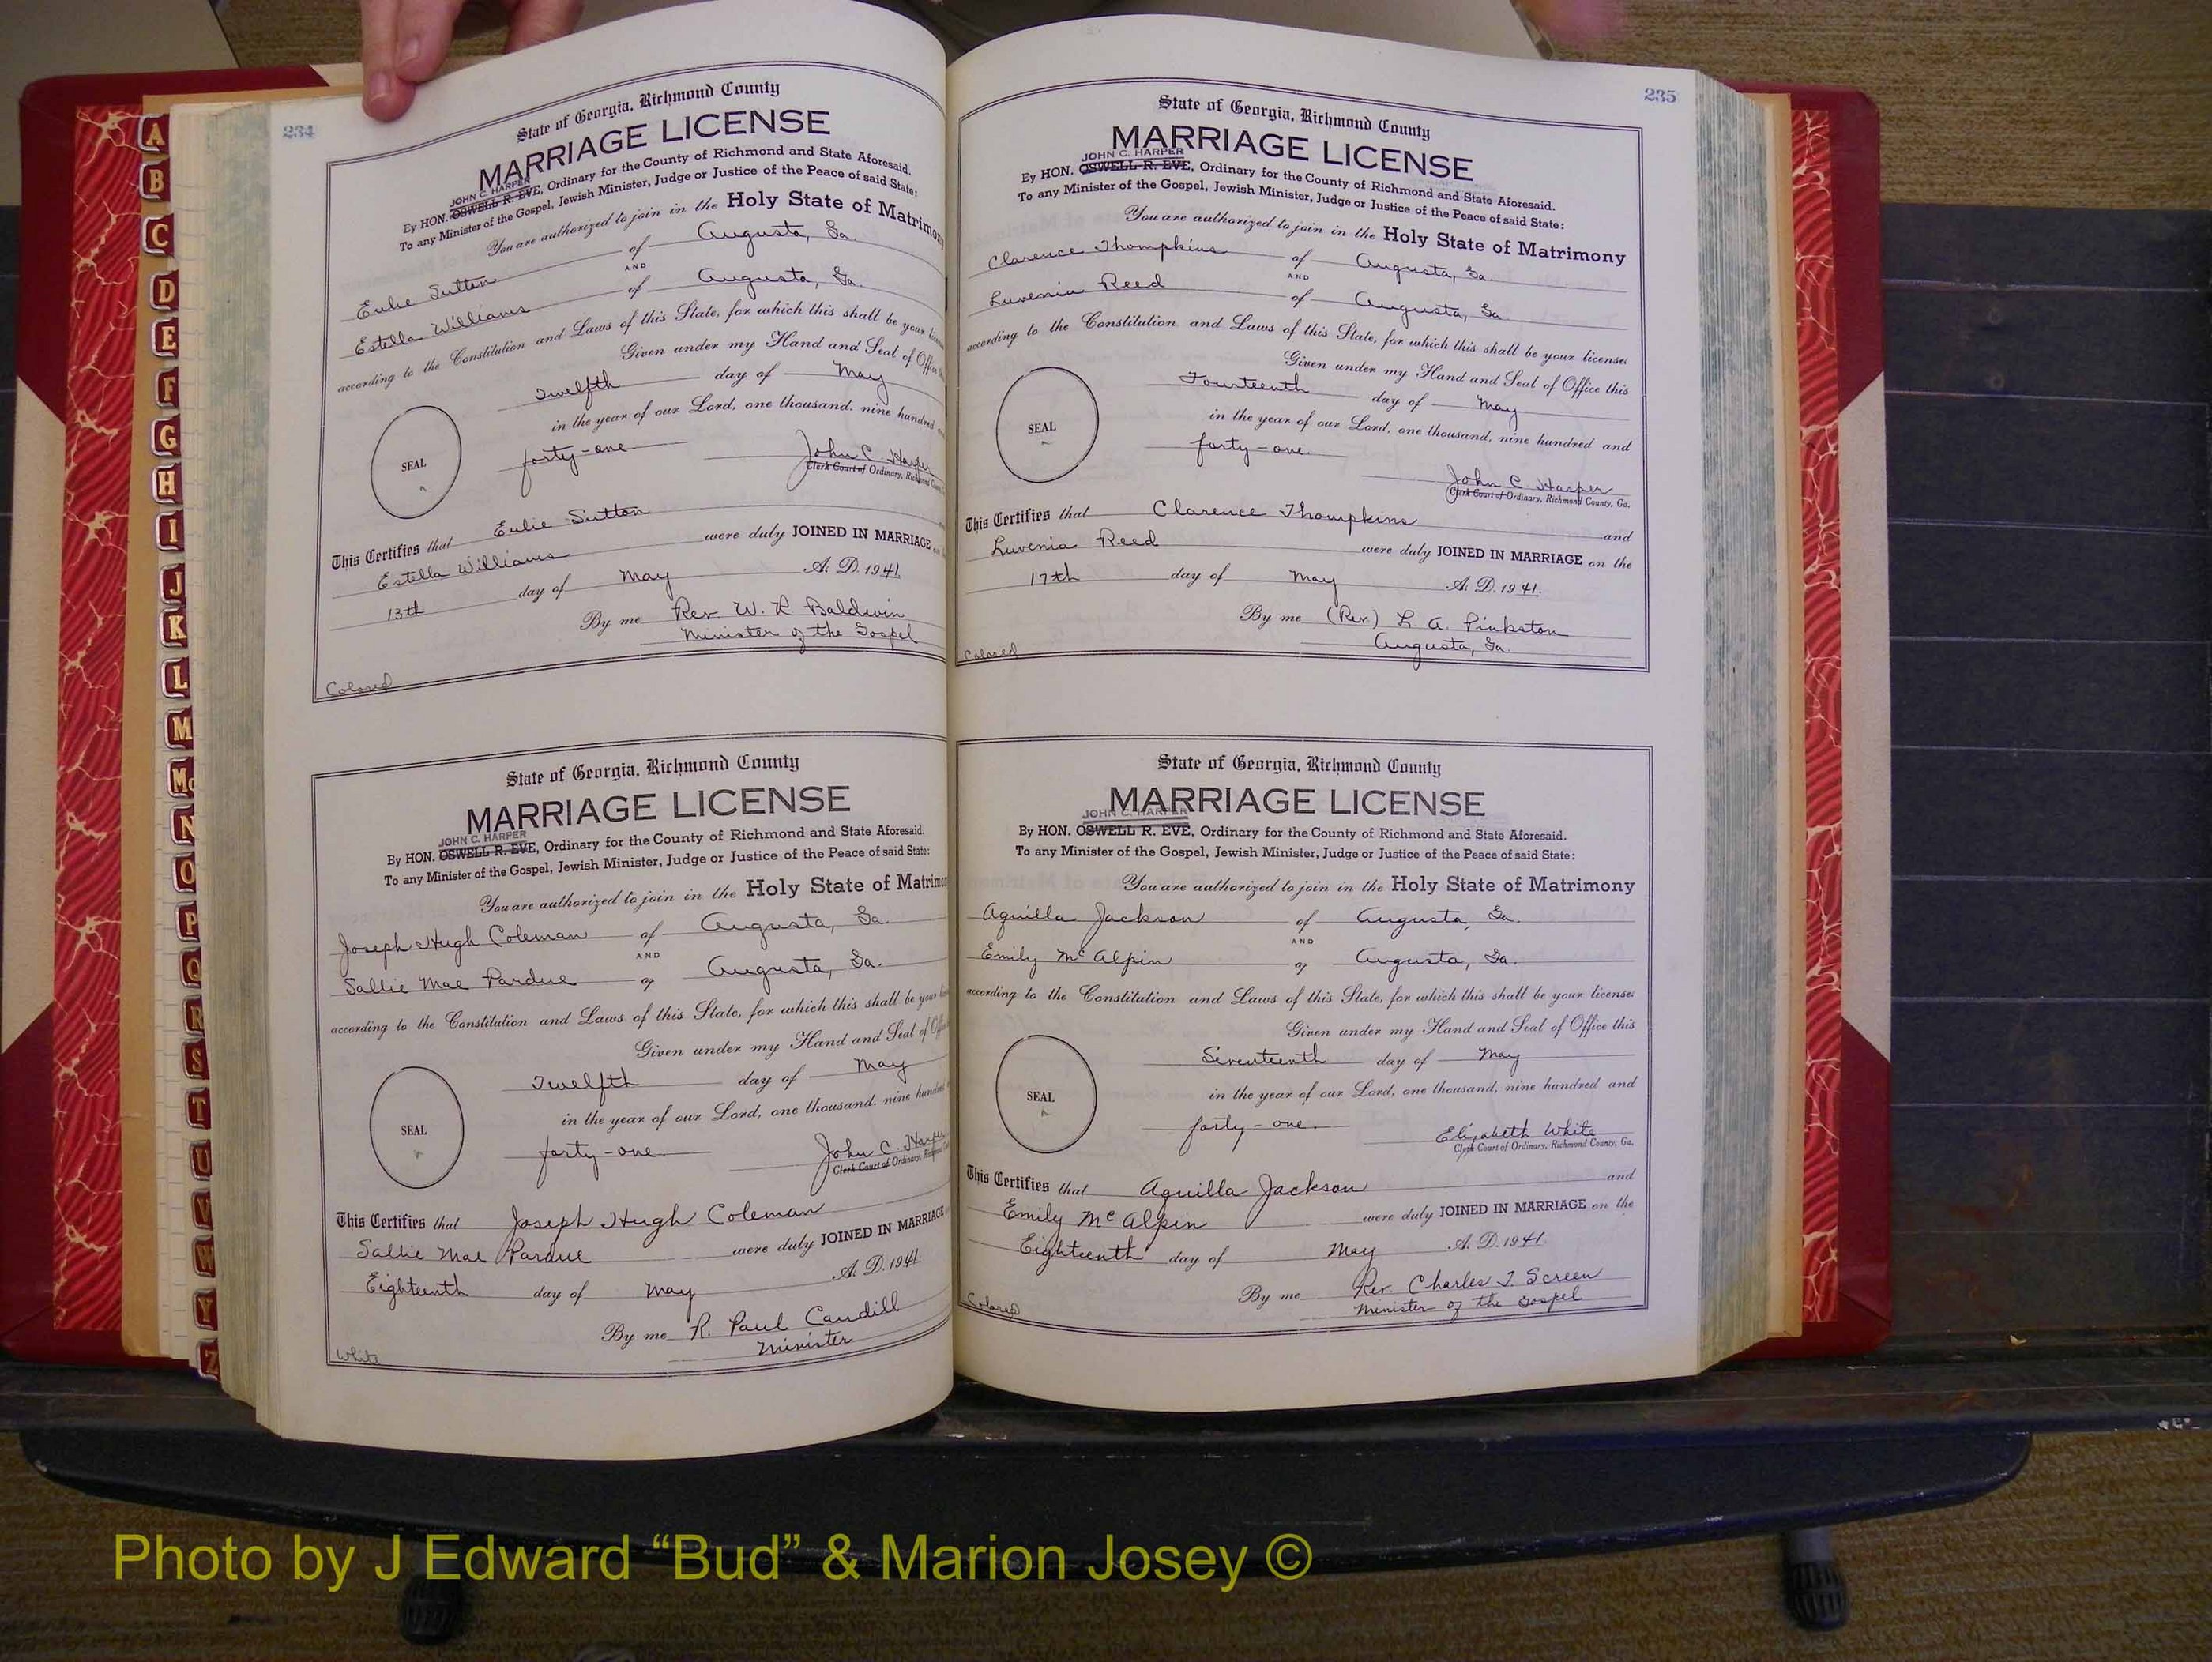 234
State of Georgia, Richmond County
MARRIAGE LICENSE
JOHN C. HARPER
By HON. OSWELL R. EVE, Ordinary for the County of Richmond and State Aforesaid.
To any Minister of the Gospel, Jewish Minister, Judge or Justice of the Peace of said State:
You are authorized to join in the Holy State of Matrimony
Eulie Sutton of Augusta, Ga.
AND
Estella Williams of Augusta, Ga.
according to the Constitution and Laws of this State, for which this shall be your
Given under my Hand and Seal of Office
Twelfth day of May
in the year of our Lord, one thousand, nine hundred
SEAL
forty-one
John C. Harper
Clerk Court of Ordinary, Richmond
This Certifies that Eulie Sutton
Estella Williams were duly JOINED IN MARRIAGE
13th day of May A. D. 1941.
By me Rev. W. R. Baldwin
Minister of the Gospel
Colored
State of Georgia, Richmond County
MARRIAGE LICENSE
JOHN C. HARPER
By HON. OSWELL R. EVE, Ordinary for the County of Richmond and State Aforesaid.
To any Minister of the Gospel, Jewish Minister, Judge or Justice of the Peace of said State:
You are authorized to join in the Holy State of Matrimony
Joseph Hugh Coleman of Augusta, Ga.
AND
Sallie Mae Pardue of Augusta, Ga.
according to the Constitution and Laws of this State, for which this shall be your
Given under my Hand and Seal of
Twelfth day of May
in the year of our Lord, one thousand, nine hundred
SEAL
forty-one
John C. Harper
Clerk Court of Ordinary,
This Certifies that Joseph Hugh Coleman
Sallie Mae Pardue were duly JOINED IN MARRIAGE
Eighteenth day of May A. D. 1941.
By me R. Paul Caudill
Minister
White
235
State of Georgia, Richmond County
MARRIAGE LICENSE
JOHN C. HARPER
By HON. OSWELL R. EVE, Ordinary for the County of Richmond and State Aforesaid.
To any Minister of the Gospel, Jewish Minister, Judge or Justice of the Peace of said State:
You are authorized to join in the Holy State of Matrimony
Clarence Thompkins of Augusta, Ga.
AND
Luvenia Reed of Augusta, Ga
according to the Constitution and Laws of this State, for which this shall be your license:
Given under my Hand and Seal of Office this
Fourteenth day of May
in the year of our Lord, one thousand, nine hundred and
SEAL
forty-one.
John C. Harper
Clerk Court of Ordinary, Richmond County, Ga.
This Certifies that Clarence Thompkins and
Luvenia Reed were duly JOINED IN MARRIAGE on the
17th day of May A. D. 1941.
By me (Rev.) L. A. Pinkston
Augusta, Ga.
Colored
State of Georgia, Richmond County
MARRIAGE LICENSE
JOHN C. HARPER
By HON. OSWELL R. EVE, Ordinary for the County of Richmond and State Aforesaid.
To any Minister of the Gospel, Jewish Minister, Judge or Justice of the Peace of said State:
You are authorized to join in the Holy State of Matrimony
Aquilla Jackson of Augusta, Ga.
AND
Emily McAlpin of Augusta, Ga.
according to the Constitution and Laws of this State, for which this shall be your license:
Given under my Hand and Seal of Office this
Seventeenth day of May
in the year of our Lord, one thousand, nine hundred and
SEAL
forty-one.
Elizabeth White
Clerk Court of Ordinary, Richmond County, Ga.
This Certifies that Aquilla Jackson and
Emily McAlpin were duly JOINED IN MARRIAGE on the
Eighteenth day of May A. D. 1941.
By me Rev. Charles T. Screen
Minister of the Gospel
Colored
A
B
C
D
E
F
G
H
I
J
K
L
M
Mc
N
O
P
Q
R
S
T
U
V
W
Y
Z
Photo by J Edward “Bud” & Marion Josey ©